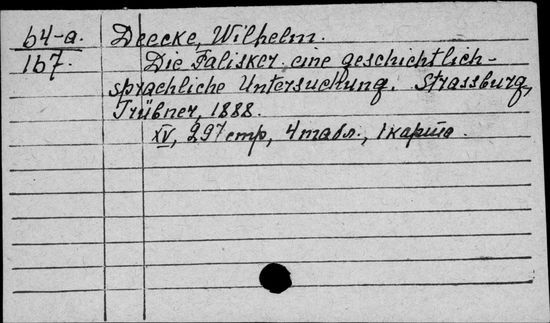 64-а. Deecke, Wilhelm.
167. Die Falisker. eine geschichtlich-
sprachliche Untersuchung. Strassburg,
Trübner, 1888.
XV, 297 стр, 4 табл., 1 карта.